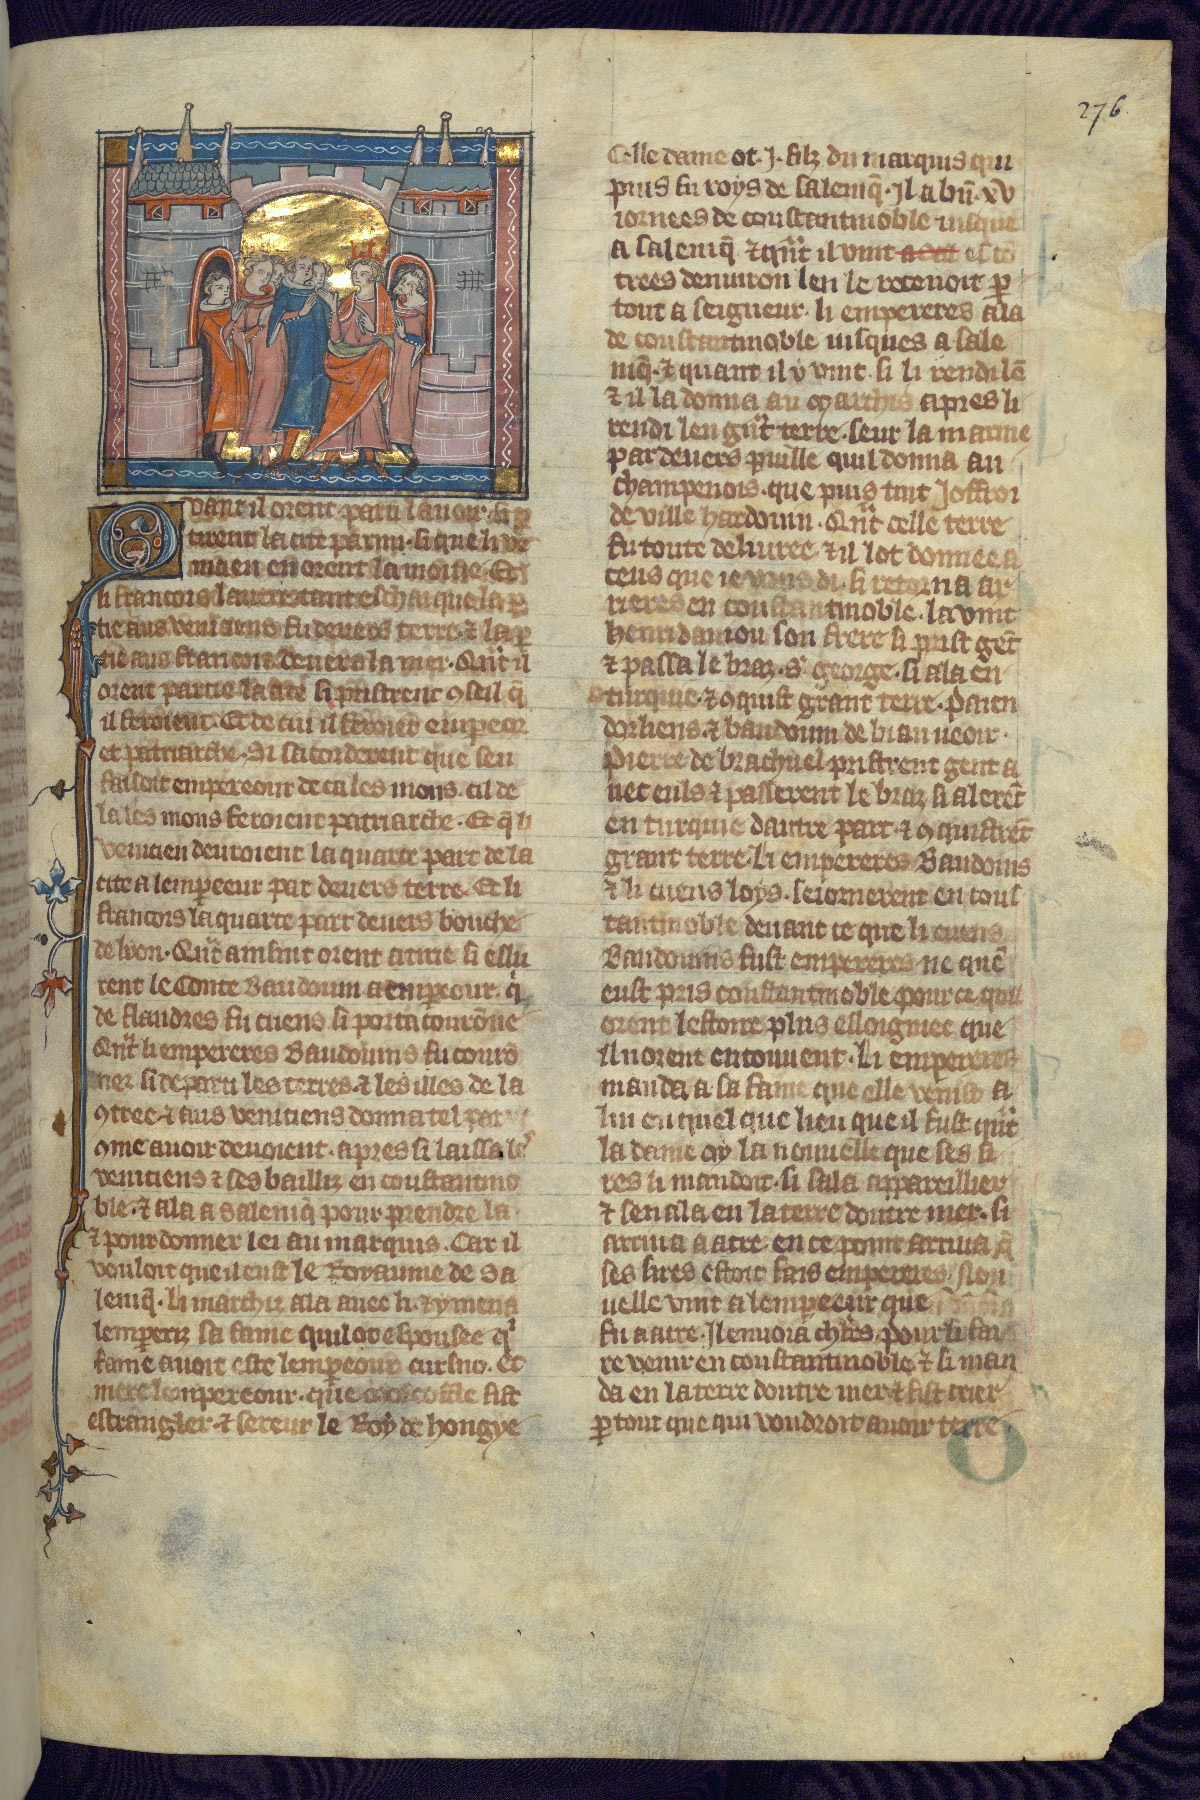 276.
Quant il orent parti lauoir. si ꝑ
tirent la cite parmi. si que li ve
nicien en orent la moitie. Et
li francois
tie aus veniciens fu deuers terre. ⁊ la ꝑ
tie aus francois deuers la mer. Qu̅t il
orent partie la cite si pristrent ꝯseil q̅
il feroient. Et de cui il feroient empeor
et patriarche. Si sacorderent que sen
faisoit empereour de ca les mons. cil de
la les mons feroient patriarche. Et q̅ li
venicien deuroient la quarte part de la
cite a lemꝑeeur par deuers terre. Et li
francois la quarte part deuers bouche
de lyon. Qu̅t ainsint orent atirie si eslu
rent le Conte Baudouin a emꝑeour. q̍
de flandres fu cuens si porta couro̅ne
Qu̅t li empereres Baudouins fu couro̅
nez si departi les terres ⁊ les illes de la
ꝯtree ⁊ aus veniciens donna tel part
ꝯme auoir deuoient. apres si laissa les
veniciens ⁊ ses bailliz en coustantino
ble. ⁊ ala a saleniq̅ pour prendre la
⁊ pour donner lei au marquis. Car il
vouloit que il eust le Royaume de Sa
leniq̅. li marchiz ala auec li. ⁊ y mena
lemꝑeriz sa fame quil ot espousee q̍
fame auoit este lemꝑeour cursac. et
mere lempereour. que cocoffle fist
estrangler. ⁊ sereur le Roy de hongrie
Celle dame ot .j. filz du marquis qui
puis fu roys de saleniq̅. Il a bn̅ .xv
iornees de coustantinoble iusque
a saleniq̅ ⁊ qu̅t il vint es co̅
trees denuiron len le receuoit ꝑ
tout a seigneur. li empereres ala
de coustantinoble iusques a sale
niq̅. ⁊ quant il y vint. si li rendi le̅
⁊ il la donna au marchis apres li
rendi len gn̅t terre. seur la marine
par deuers puille quil donna au
champenois. que puis tint Joffroi
de ville hardouin. Qu̅t celle terre
fu toute deliuree. ⁊ il lot donnee a
ceus que ie vous di. si retorna ar
rieres en coustantinoble. la vint
henri daniou son frere si prist ge̅t
⁊ passa le braz .s. george. si ala en
turquie. ⁊ ꝯquist grant terre. Paien
dorliens. ⁊ baudouin de biauueoir.
Pierre de brachuel pristrent gent a
uec euls ⁊ passerent le braz si alere̅t
en turquie dautre part. ⁊ ꝯquistre̅t
grant terre. Li empereres Baudouins
⁊ li cuens loys. seiornerent en cous
tantinoble deuant ce que li cuens
Baudouins fust empereres ne que̅
eust pris coustantinoble pour ce quil
orent lestoire plus esloigniee que
il norent en couuent. Li empereres
manda a sa fame que elle venist a
lui en quel que lieu que il fust. qu̅t
la dame oy la nouuelle que ses si
res li mandoit. si sala appareillier
⁊ sen ala en la terre doutre mer. si
arriua a acre. en ce point arriua q̅
ses sires estoit fais empereres. Nou
uelle vint a lemꝑeeur que
fu a acre. Il enuoia chl̅rs. pour li fai
re venir en coustantinoble. ⁊ si man
da en la terre doutre mer ⁊ fist crier
ꝑ tout que qui voudroit auoir terre